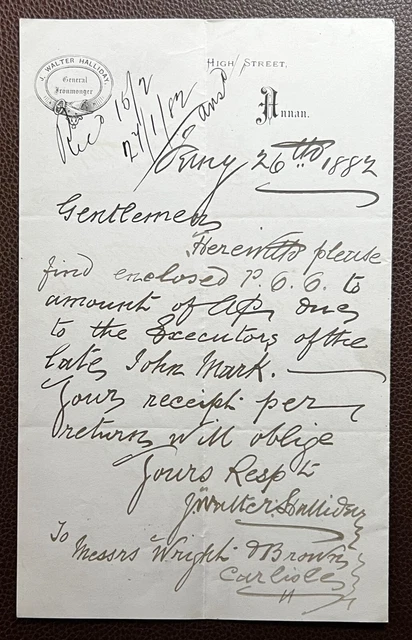 J. WALTER HALLIDAY,
General
Ironmonger
HIGH STREET,
Annan.
Recd 15/2
27/1/82
ansd
26th 1882
Gentlemen
Herewith please
find enclosed P.O.O. to
amount of a/c due
to the Executors of the
late John Mark.
Your receipt per
return will oblige
Yours Resp t
J Walter Halliday
To
Messrs Wright & Brown
Carlisle